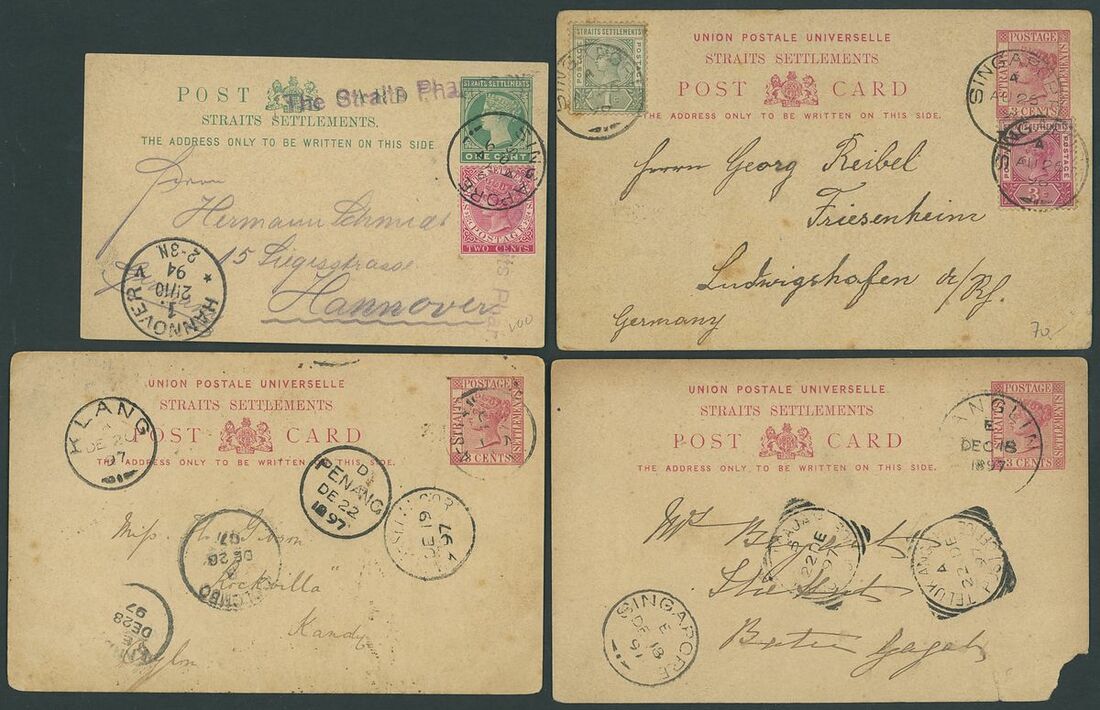 The Straits Phar
POST CARD
STRAITS SETTLEMENTS.
THE ADDRESS ONLY TO BE WRITTEN ON THIS SIDE
STRAITS SETTLEMENTS
ONE CENT
SINGAPORE
POSTAGE
TWO CENTS
Herrn
Hermann Schmidt
15
Hannover
HANNOVER
1
21/10
94
2-3N
100
UNION POSTALE UNIVERSELLE
STRAITS SETTLEMENTS
POST CARD
THE ADDRESS ONLY TO BE WRITTEN ON THIS SIDE.
STRAITS SETTLEMENTS
POSTAGE
POSTAGE
3 CENTS
SINGAPORE
AU 25
Herrn Georg Reibel
Friesenheim
Ludwigshafen a/Rh.
Germany
70.-
UNION POSTALE UNIVERSELLE
STRAITS SETTLEMENTS
POST CARD
THE ADDRESS ONLY TO BE WRITTEN ON THIS SIDE.
POSTAGE
STRAITS
SETTLEMENTS
3 CENTS
KLANG
97
D
PENANG
DE 22
1897
DE 19
97
Miss
"Rockvilla"
Kandy
COLOMBO
DE 26
97
DE 28
97
UNION POSTALE UNIVERSELLE
STRAITS SETTLEMENTS
POST CARD
THE ADDRESS ONLY TO BE WRITTEN ON THIS SIDE.
POSTAGE
STRAITS
SETTLEMENTS
3 CENTS
TANGLIN
E
DEC 18
1897
22 DE
97
TELUK ANSON
A
22 DE
97
Batu Gajah
SINGAPORE
E
DE 18
97